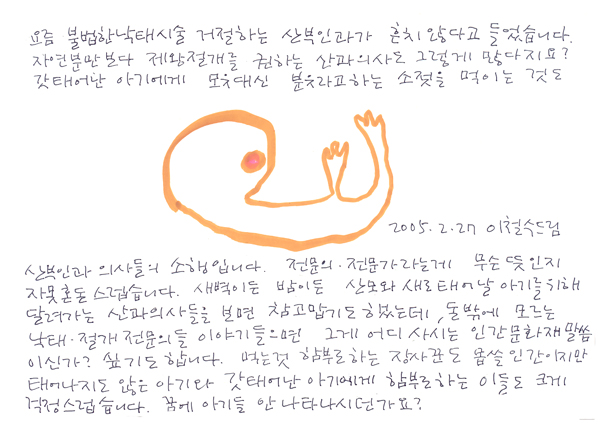 요즘 불법한낙태시술 거절하는 산부인과가 흔치 않다고 들었습니다.
자연분만보다 제왕절개를 권하는 산과의사도 그렇게 많다지요?
갓태어난 아기에게 모유대신 분유라고하는 소젖을 먹이는 것도
2005.2.27 이철수드림
산부인과 의사들의 소행입니다. 전문의·전문가라는게 무슨 뜻인지
자못혼돈스럽습니다. 새벽이든 밤이든 산모와 새로태어날 아기를위해
달려가는 산과의사들을 보면 참고맙기도하였는데, 돈밖에 모르는
낙태·절개전문의들 이야기들으면 그게 어디 사시는 인간문화재말씀
이신가? 싶기도 합니다. 먹는것 함부로하는 장사꾼도 몹쓸인간이지만
태어나지도 않은 아기와 갓태어난 아기에게 함부로하는 이들도 크게
걱정스럽습니다. 꿈에 아기들 안나타나시던가요?